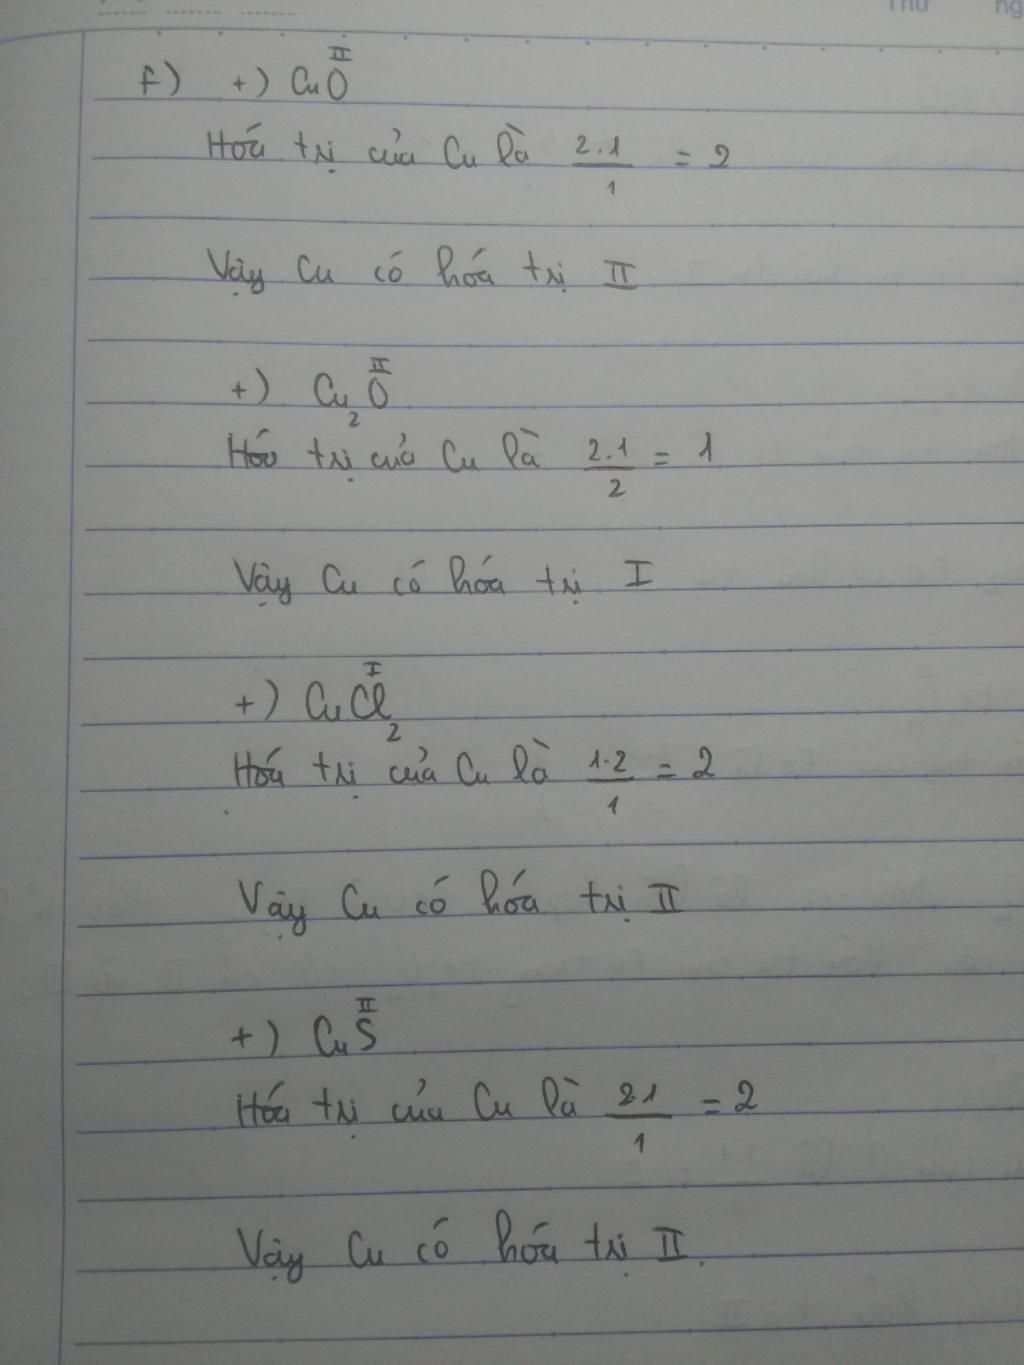 Thứ ng
f) +) CuO^II
Hóa trị của Cu là 2.1/1 = 2
Vậy Cu có hóa trị II
+) Cu₂O^II
Hóa trị của Cu là 2.1/2 = 1
Vậy Cu có hóa trị I
+) CuCl₂^I
Hóa trị của Cu là 1.2/1 = 2
Vậy Cu có hóa trị II
+) CuS^II
Hóa trị của Cu là 2.1/1 = 2
Vậy Cu có hóa trị II.